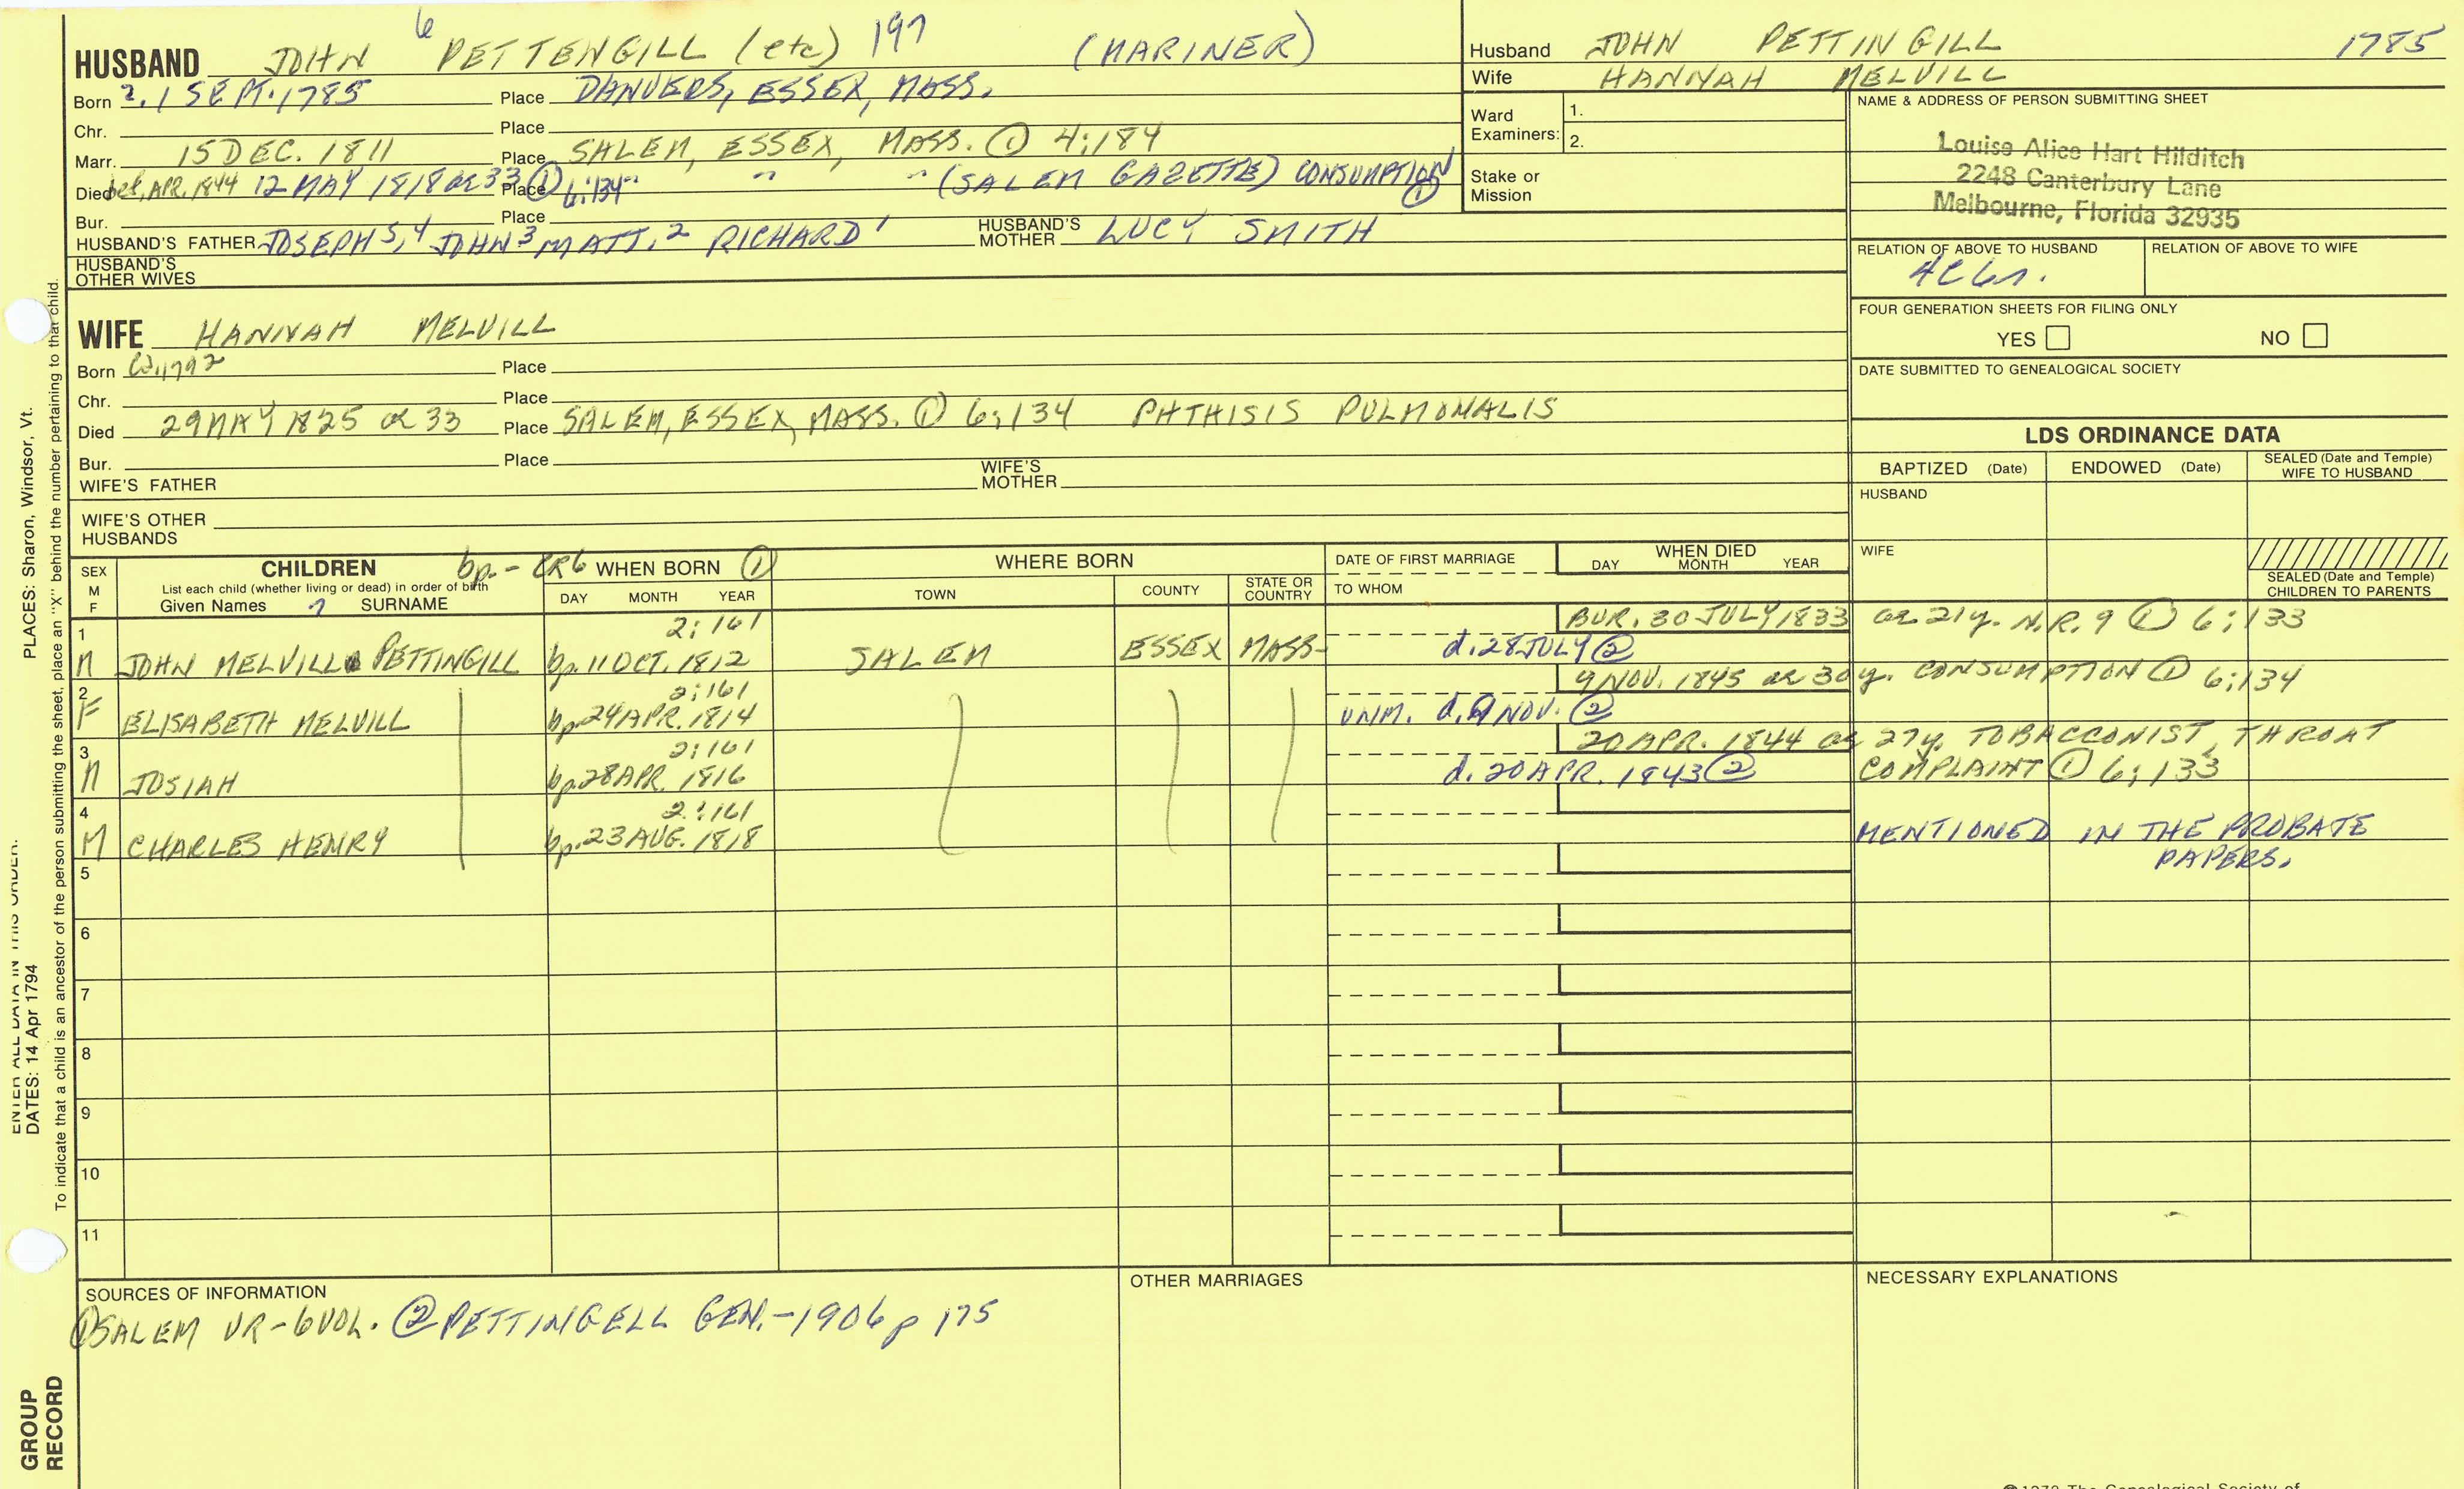 HUSBAND JOHN 6 PETTENGILL (etc) 197 (MARINER)
Born 2.1 SEPT. 1785 Place DANVERS, ESSEX, MASS.
Chr. Place
Marr. 15 DEC. 1811 Place SALEM, ESSEX, MASS. ① 4:184
Died bef. APR. 1844 12 MAY 1818 ae 33 ① Place 6:134 " " " (SALEM GAZETTE) CONSUMPTION ①
Bur. Place
HUSBAND'S FATHER JOSEPH 5,4 JOHN 3 MATT. 2 RICHARD 1 HUSBAND'S MOTHER LUCY SMITH
HUSBAND'S OTHER WIVES
Husband JOHN PETTINGILL 1785
Wife HANNAH MELVILL
Ward Examiners: 1.
2.
Stake or Mission
NAME & ADDRESS OF PERSON SUBMITTING SHEET
Louise Alice Hart Hilditch
2248 Canterbury Lane
Melbourne, Florida 32935
RELATION OF ABOVE TO HUSBAND RELATION OF ABOVE TO WIFE
FOUR GENERATION SHEETS FOR FILING ONLY
YES NO
DATE SUBMITTED TO GENEALOGICAL SOCIETY
WIFE HANNAH MELVILL
Born 1792 Place
Chr. Place
Died 29 MAY 1825 ae 33 Place SALEM, ESSEX, MASS. ① 6:134 PHTHISIS PULMONALIS
Bur. Place
WIFE'S FATHER WIFE'S MOTHER
WIFE'S OTHER HUSBANDS
LDS ORDINANCE DATA
BAPTIZED (Date) ENDOWED (Date) SEALED (Date and Temple) WIFE TO HUSBAND
HUSBAND
WIFE
SEALED (Date and Temple) CHILDREN TO PARENTS
SEX M F
CHILDREN
List each child (whether living or dead) in order of birth
Given Names 7 SURNAME
bp. - CR6 WHEN BORN ①
DAY MONTH YEAR
WHERE BORN
TOWN COUNTY STATE OR COUNTRY
DATE OF FIRST MARRIAGE
TO WHOM
WHEN DIED
DAY MONTH YEAR
1 2:161 BUR. 30 JULY 1833 ae 21y. N.R.9 ① 6:133
M JOHN MELVILL PETTINGILL bp. 11 OCT. 1812 SALEM ESSEX MASS- d. 28 JULY ②
2 2:161 9 NOV. 1845 ae 30y. CONSUMPTION ① 6:134
F ELISABETH MELVILL bp. 24 APR. 1814 UNM. d. 9 NOV. ②
3 2:161 20 APR. 1844 ae 27y. TOBACCONIST, THROAT
M JOSIAH bp. 28 APR. 1816 d. 20 APR. 1843 ② COMPLAINT ① 6:133
4 2:161
M CHARLES HENRY bp. 23 AUG. 1818 MENTIONED IN THE PROBATE
PAPERS.
5
6
7
8
9
10
11
SOURCES OF INFORMATION
① SALEM VR-6 VOL. ② PETTINGELL GEN.-1906 p 175
OTHER MARRIAGES
NECESSARY EXPLANATIONS
PLACES: Sharon, Windsor, Vt.
ENTER ALL DATA IN THIS ORDER:
DATES: 14 Apr 1794
To indicate that a child is an ancestor of the person submitting the sheet, place an "X" behind the number pertaining to that child.
GROUP
RECORD
The Genealogical Society of